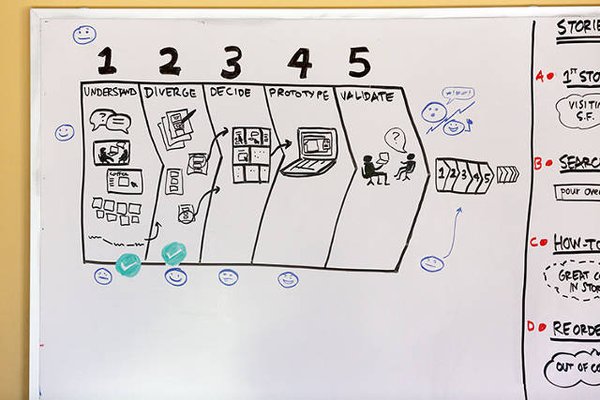 1 2 3 4 5
UNDERSTAND DIVERGE DECIDE PROTOTYPE VALIDATE
?
?
1 2 3 4 5
STORIE
A • 1ST STO
VISITI
S.F.
B • SEARC
POUR OVE
C • HOW-TO
GREAT C
IN STOR
D • REORDE
OUT OF CO